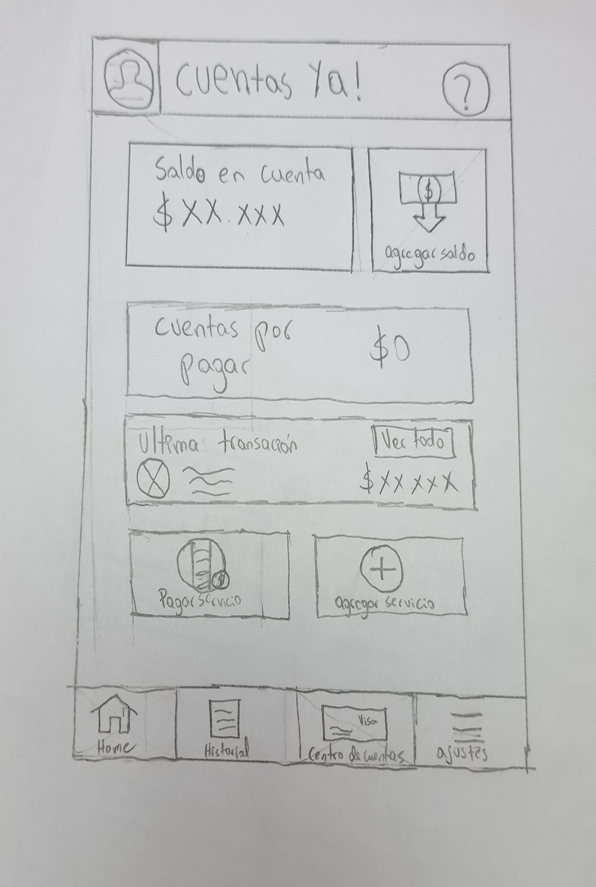 Cuentas Ya!
?
Saldo en cuenta
$ XX.XXX
$
agregar saldo
Cuentas por
pagar
$0
Ultima transación
Ver todo
$XXXXX
Pagar servicio
agregar servicio
Home
Historial
Visa
Centro de cuentas
ajustes